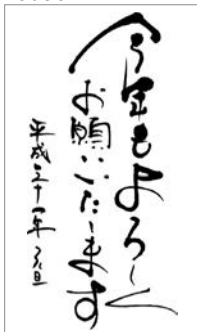 今年もよろしく
お願いいたします
平成三十一年 元旦